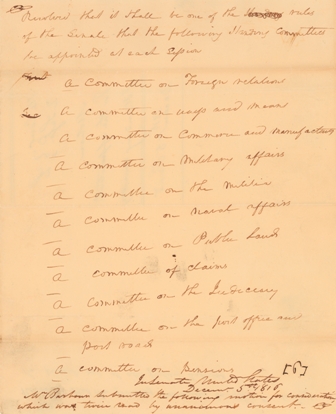 Resolved that it shall be one of the rules
of the Senate that the following Standing Committees
be appointed at each Session
A Committee on Foreign relations
A Committee on ways and means
A Committee on Commerce and manufactures
A Committee on Military affairs
A Committee on the Militia
A Committee on naval affairs
A Committee on Public Lands
A Committee of claims
A Committee on the Judiciary
A Committee on the Post office and
Post roads
A Committee on Pensions [6]
In Senate United States
Decem 5th 1816
Mr Barbour submitted the following motion for consideration
which was twice read by unanimous consent.